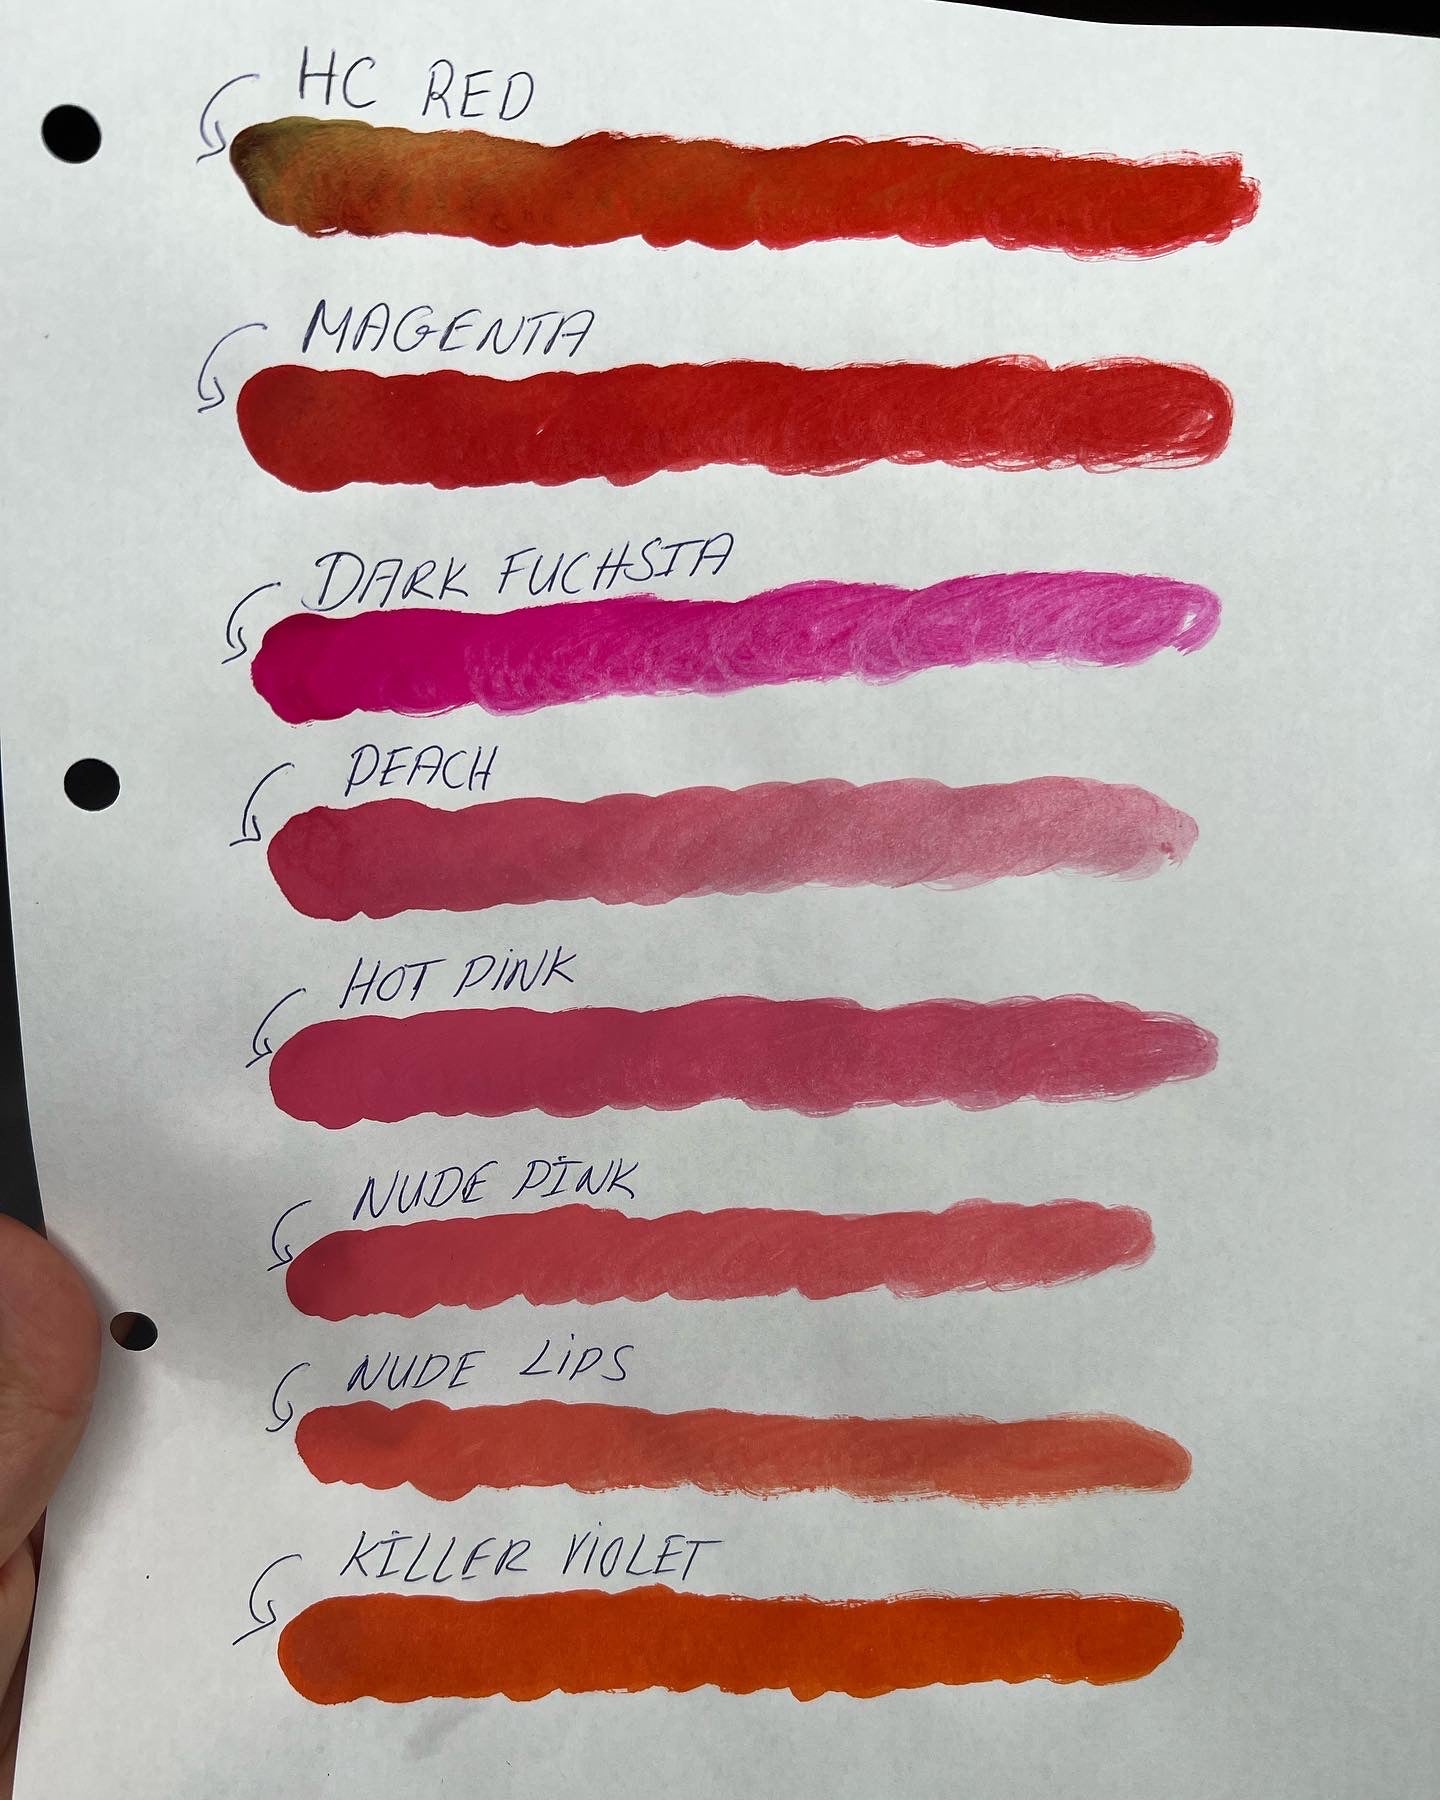 HC RED
MAGENTA
DARK FUCHSIA
PEACH
HOT PiNK
NUDE PINK
NUDE LiPS
KILLER ViOLET